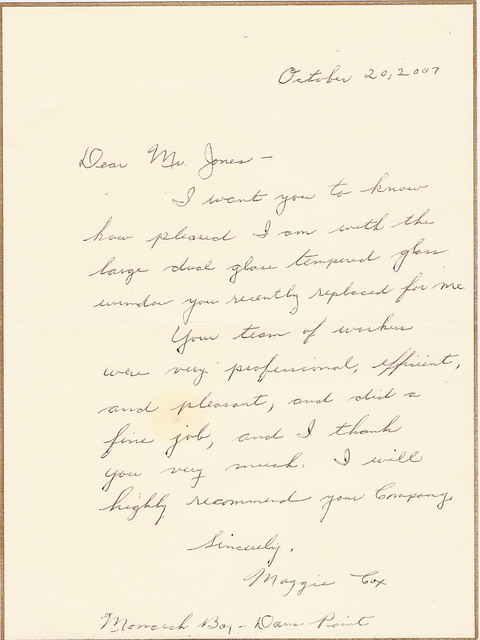 October 20, 2007
Dear Mr. Jones -
I want you to know
how pleased I am with the
large dual glaze tempered glass
window you recently replaced for me
Your team of workers
were very professional, efficient,
and pleasant, and did a
fine job, and I thank
you very much. I will
highly recommend your Company.
Sincerely,
Maggie Cox
Monarch Bay - Dana Point